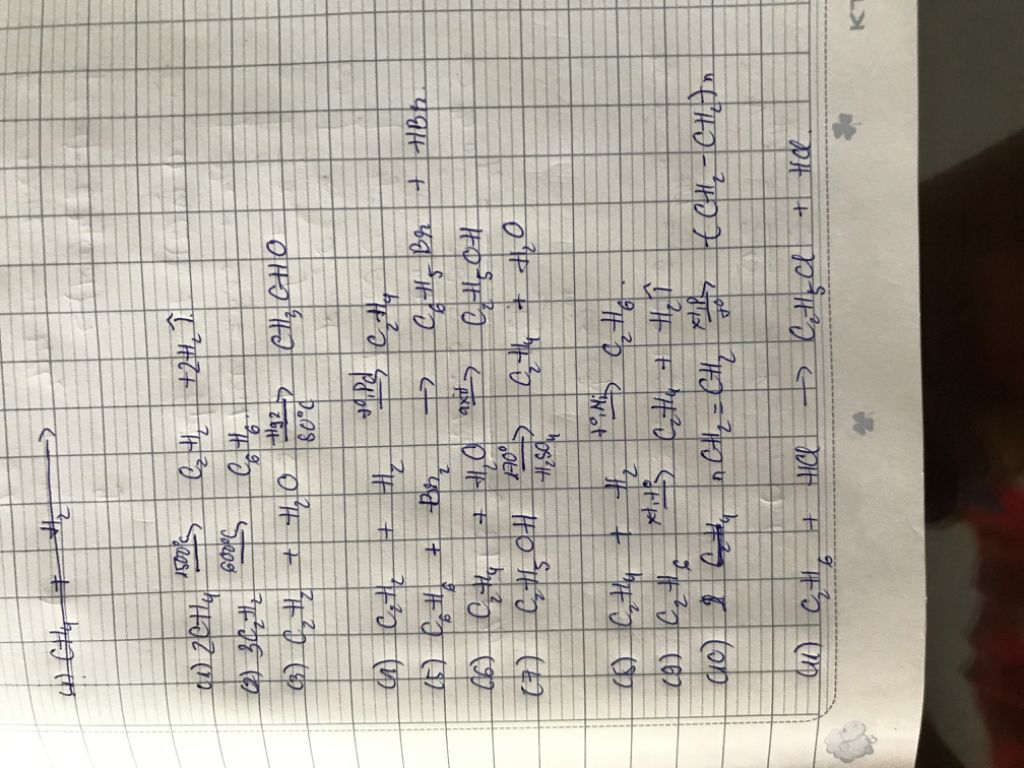 (1) CH₄ + H₂ ⟶
(1) 2CH₄ 1500°C→ C₂H₂ + 2H₂↑
(2) 3C₂H₂ 600°C→ C₆H₆.
(3) C₂H₂ + H₂O Hg2→ 80°C CH₃CHO
(4) C₂H₂ + H₂ t°,Pd→ C₂H₄
(5) C₆H₆ + Br₂ → C₆H₅Br + HBr.
(6) C₂H₄ + H₂O axit→ C₂H₅OH
(7) C₂H₅OH 170°→ H₂SO₄ C₂H₄ + H₂O
(8) C₂H₄ + H₂ t°,Ni→ C₂H₆.
(9) C₂H₆ xt,t°→ C₂H₄ + H₂↑
(10) C₂H₄ nCH₂=CH₂ xt,P→ t° (CH₂-CH₂)n
(11) C₂H₆ + HCl → C₂H₅Cl + HCl.